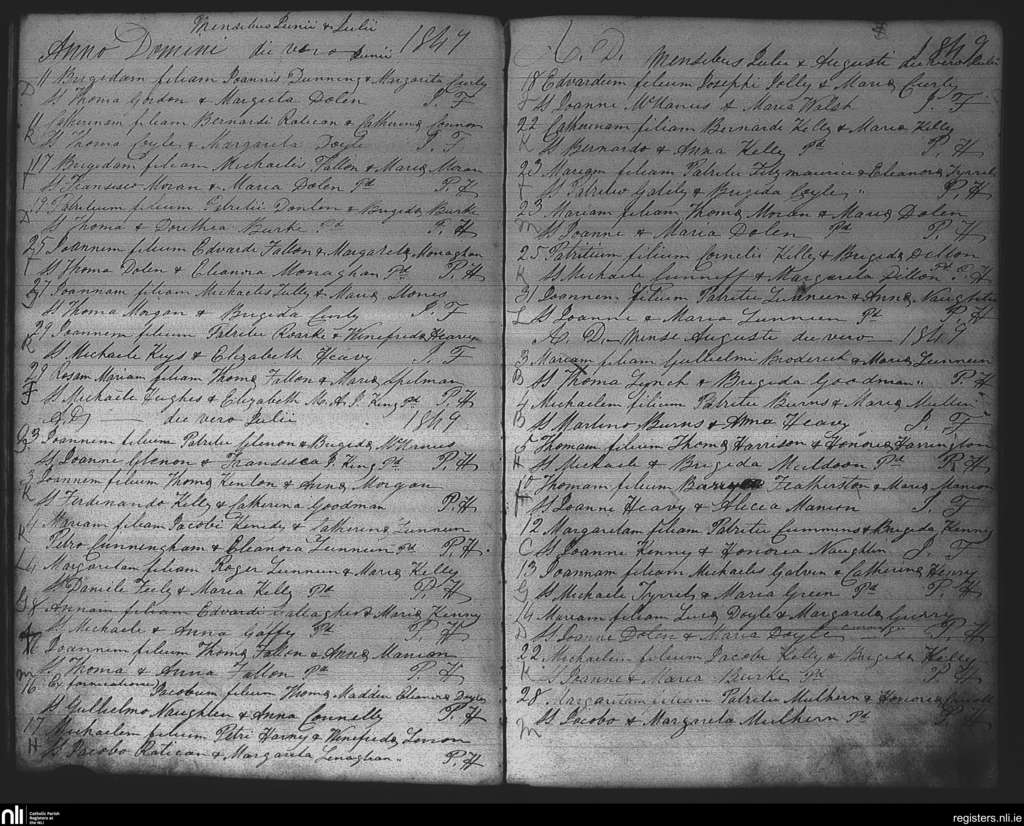 Mensibus Junii & Julii
Anno Domini die vero Junii 1849
D 11 Brigedam filiam Joannis Dunning & Margarita Curly
Ss Thoma Gordon & Margreta Dolen J. F
11 Catherinam filiam Bernardi Ratican & Catherina Connor
R Ss Thoma Coyle & Margarita Doyle J. F
17 Brigedam filiam Michaelis Fallon & Maria Moran
F Ss Fransisco Moran & Maria Dolen Pd P. H
19 Patritium filium Patritii Donlon & Brigida Burke
D Ss Thoma & Dorethea Burke Pd P. H
25 Joannem filium Edvardi Fallon & Margareta Monaghan
F Ss Thoma Dolen & Eleanora Monaghan Pd P. H
27 Joannam filiam Michaelis Tully & Maria
Ss Thoma Morgan & Brigida Curly J. F
29 Joannem filium Patritii Roarke & Winefreda Heavy
R Ss Michaele Keys & Elizabeth Heavy J. F
29 Rosam Mariam filiam Thoma Fallon & Maria Spelman
F Ss Michaele Hughes & Elizabeth M. A. J. King Pd P. H
A. D. die vero Julii 1849
G 3 Joannem filium Patritii Glenon & Brigida McManus
Ss Joanne Glenon & Fransisca J. King Pd P. H
3 Joannem filium Thoma Kenlon & Anna Morgan
K Ss Ferdinando Kelly & Catherina Goodman P. H
4 Mariam filiam Jacobi Kenedy & Catherina Lunneen
K Petro Cunningham & Eleanora Lunneen Pd P. H.
L 4 Margaritam filiam Roger Lunneen & Maria Kelley
Ss Daniele Feely & Maria Kelly Pd P. H
G 8 Annam filiam Edvardi Gallagher & Maria Kenny
Ss Michaele & Anna Gaffey Pd P. H
Joannem filium Thoma Fallon & Anna Manion
Ss Thoma & Anna Fallon Pd P. H
M 16 Ex fornicatione Jacobum filium Thoma Madden Eleanora Doyle
Ss Gulhelmo Naughten & Anna Connelly P. H
17 Michaelem filium Petri Harny & Winefreda
H Ss Jacobo Ratican & Margarita Lenaghan " P. H
A. D. Mensibus Julii & Augusti die vero Julii 1849
18 Edvardum filium Josephi Jolly & Maria Curly
J Ss Joanne McManus & Maria Walsh J. F
22 Catherinam filiam Bernardi Kelly & Maria Kelly
K Ss Bernardo & Anna Kelly Pd P. H
23 Mariam filiam Patritii Fitzmaurice & Eleanora Tyrrell
F Ss Patritio Gately & Brigida Coyle " P. H
23 Mariam filiam Thoma Moran & Maria Dolen
M Ss Joanne & Maria Dolen Pd P. H
25 Patritium filium Cornelii Kelly & Brigida Dillon
K Ss Michaele Cunniff & Margarita Dillon Pd P. H
31 Joannem filium Patritii Lunneen & Anna Naughten
L Ss Joanne & Maria Lunneen Pd P. H
A. D. Mense Augusti die vero 1849
3 Mariam filiam Gulhelmi Broderick & Maria Lunneen
B Ss Thoma Lynch & Brigida Goodman " P. H
4 Michaelem filium Patritii Burns & Maria Mullen
B Ss Martino Burns & Anna Heavy J. F
5 Thomam filium Thoma Harrison & Honoria Harrington
H Ss Michaele & Brigida Muldoon Pd P. H
Thomam filium Featherston & Maria Manion
F Ss Joanne Heavy & Alicia Manion J. F
12 Margaritam filiam Patritii Cummins & Brigida Kenny
C Ss Joanne Kenny & Honoria Naughten J. F
13 Joannam filiam Michaelis Galvin & Catherina Henry
G Ss Michaele Tyrrell & Maria Green Pd P. H
14 Mariam filiam Luca Doyle & Margarita Curry
D Ss Joanne Dolen & Maria Doyle P. H
22 Michaelem filium Jacobi Kelly & Brigida Kelly
K Ss Joanne & Maria Burke Pd P. H
28 Margaritam filiam Patritii Mulhern & Honoria
M Ss Jacobo & Margarita Mulhern Pd P. H
nli Catholic Parish
Registers at
the NLI
registers.nli.ie